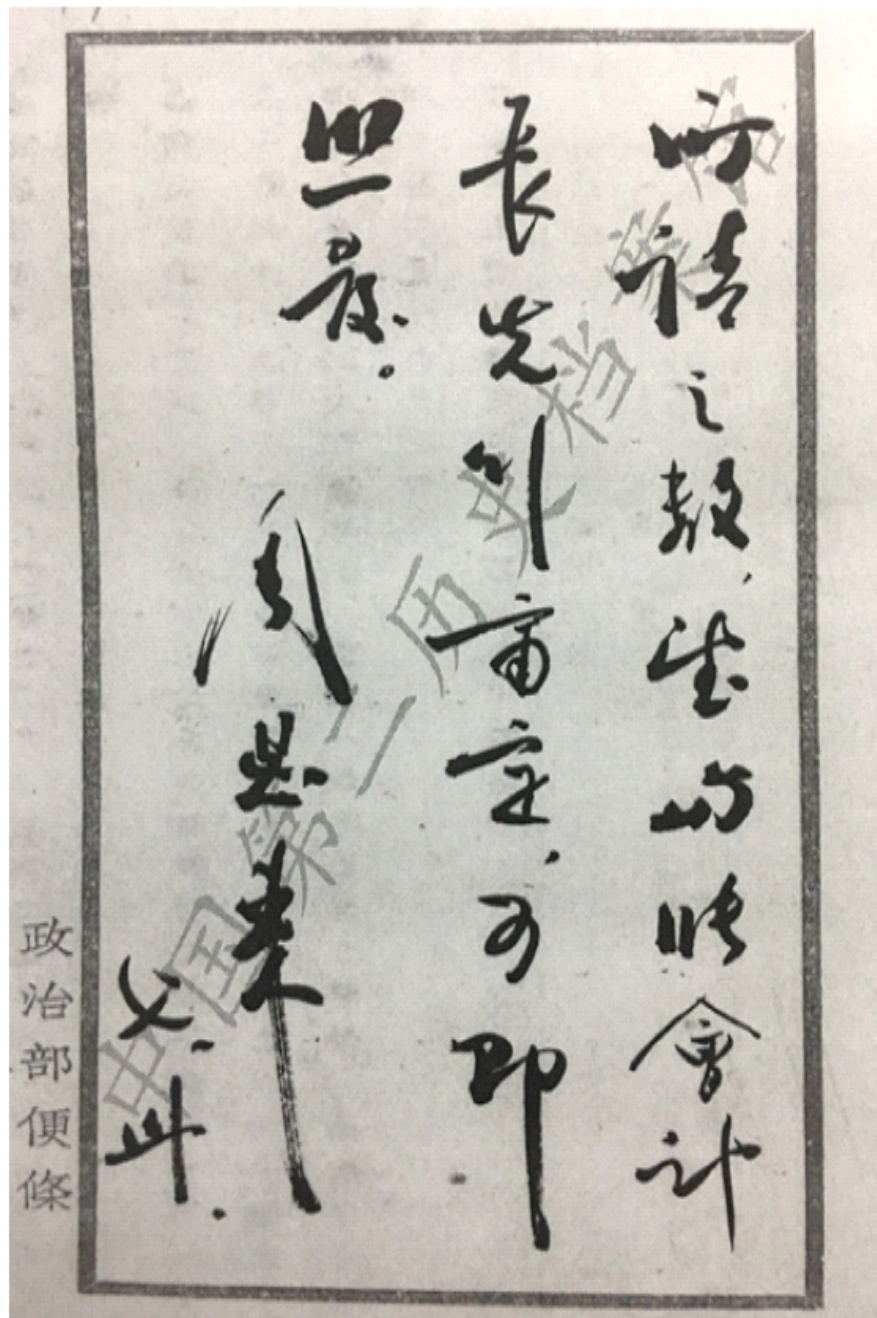 所請之數，望與張會計
長先行審定，可即
照發。
周恩来
七、卅.
政治部便條
中国第二历史档案馆